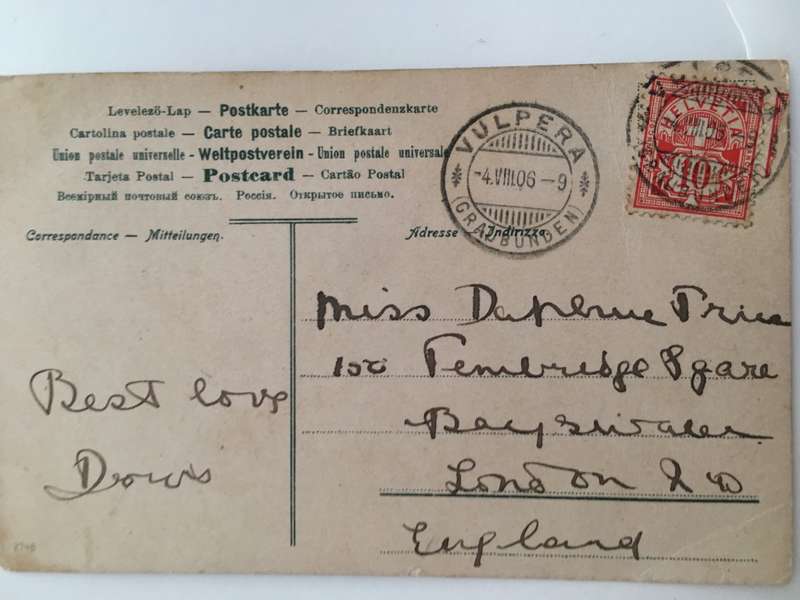 Levelezö-Lap — Postkarte — Correspondenzkarte
Cartolina postale — Carte postale — Briefkaart
Union postale universelle - Weltpostverein - Union postale universale
Tarjeta Postal — Postcard — Cartão Postal
Всемірный почтовый союзъ. Россія. Открытое письмо.
Correspondance — Mitteilungen.
Adresse — Indirizzo
VULPERA
-4.VIII.06-9
(GRAUBÜNDEN)
HELVETIA
10
Miss Daphne
Pembridge Sqare
Bayswater
London W
England
Best love